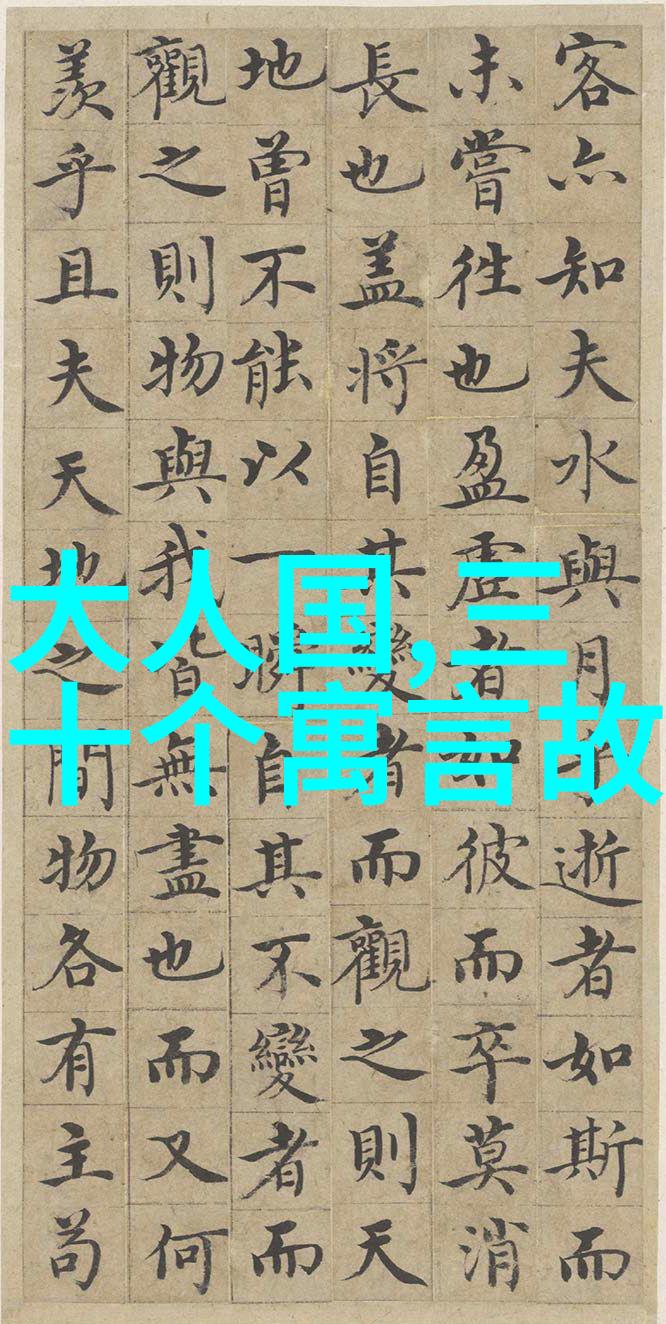 客亦知夫水與月乎逝者如斯而
未嘗往也盈虛者如彼而卒莫消
長也盖將自其變者而觀之則天
地曾不能以一瞬自其不變者而
觀之則物與我皆無盡也而又何
羨乎且夫天地之間物各有主苟
大人国,三
十个寓言故